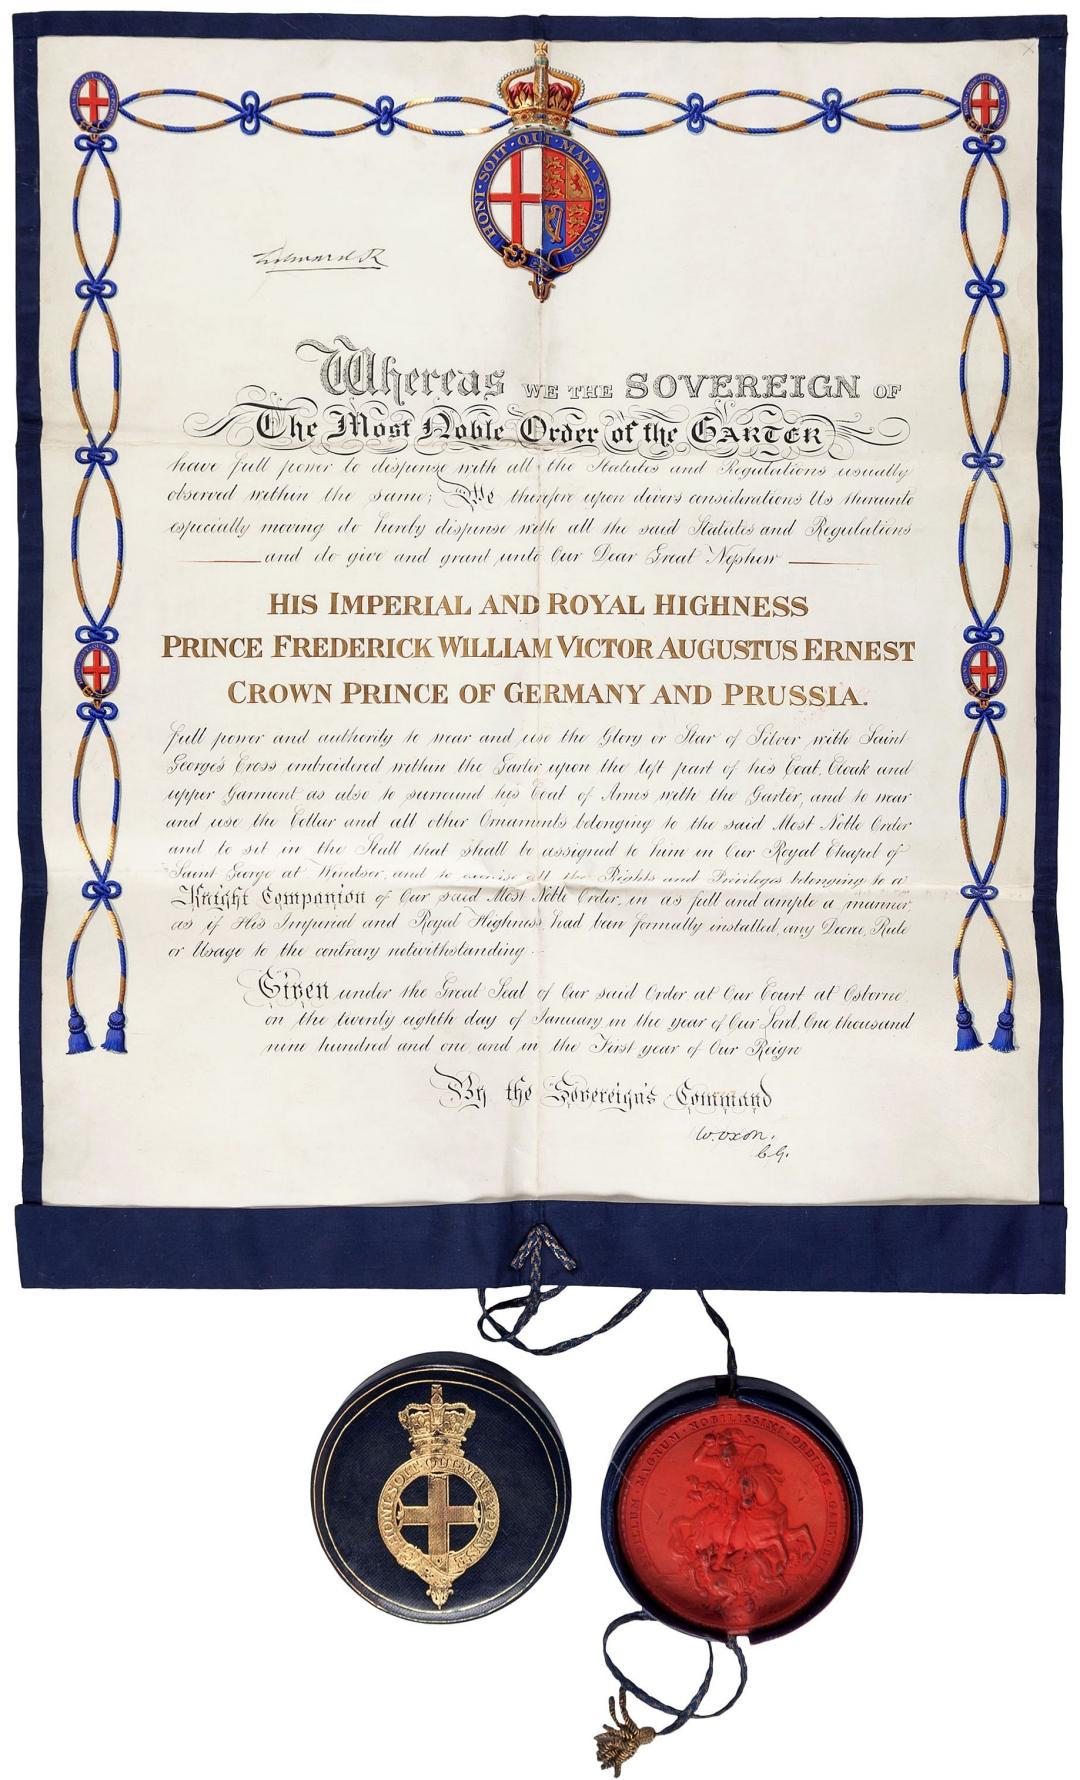 HONI · SOIT · QUI · MAL · Y · PENSE
Edward R
Whereas WE THE SOVEREIGN OF
The Most Noble Order of the GARTER
have full power to dispense with all the Statutes and Regulations usually
observed within the same; We therefore upon divers considerations Us thereunto
especially moving do hereby dispense with all the said Statutes and Regulations
and do give and grant unto Our Dear Great Nephew
HIS IMPERIAL AND ROYAL HIGHNESS
PRINCE FREDERICK WILLIAM VICTOR AUGUSTUS ERNEST
CROWN PRINCE OF GERMANY AND PRUSSIA.
full power and authority to wear and use the Glory or Star of Silver with Saint
George's Cross embroidered within the Garter upon the left part of his Coat, Cloak and
upper Garment as also to surround his Coat of Arms with the Garter, and to wear
and use the Collar and all other Ornaments belonging to the said Most Noble Order
and to sit in the Stall that shall be assigned to him in Our Royal Chapel of
Saint George at Windsor, and to exercise all the Rights and Privileges belonging to a
Knight Companion of Our said Most Noble Order, in as full and ample a manner,
as if His Imperial and Royal Highness, had been formally installed, any Decree, Rule
or Usage to the contrary notwithstanding.
Given under the Great Seal of Our said Order at Our Court at Osborne
on the twenty eighth day of January in the year of Our Lord, One thousand
nine hundred and one, and in the First year of Our Reign
By the Sovereign's Command
W. Oxon.
C.G.
HONI · SOIT · QUI · MAL · Y · PENSE
SIGILLUM · MAGNUM · NOBILISSIMI · ORDINIS · GARTERII